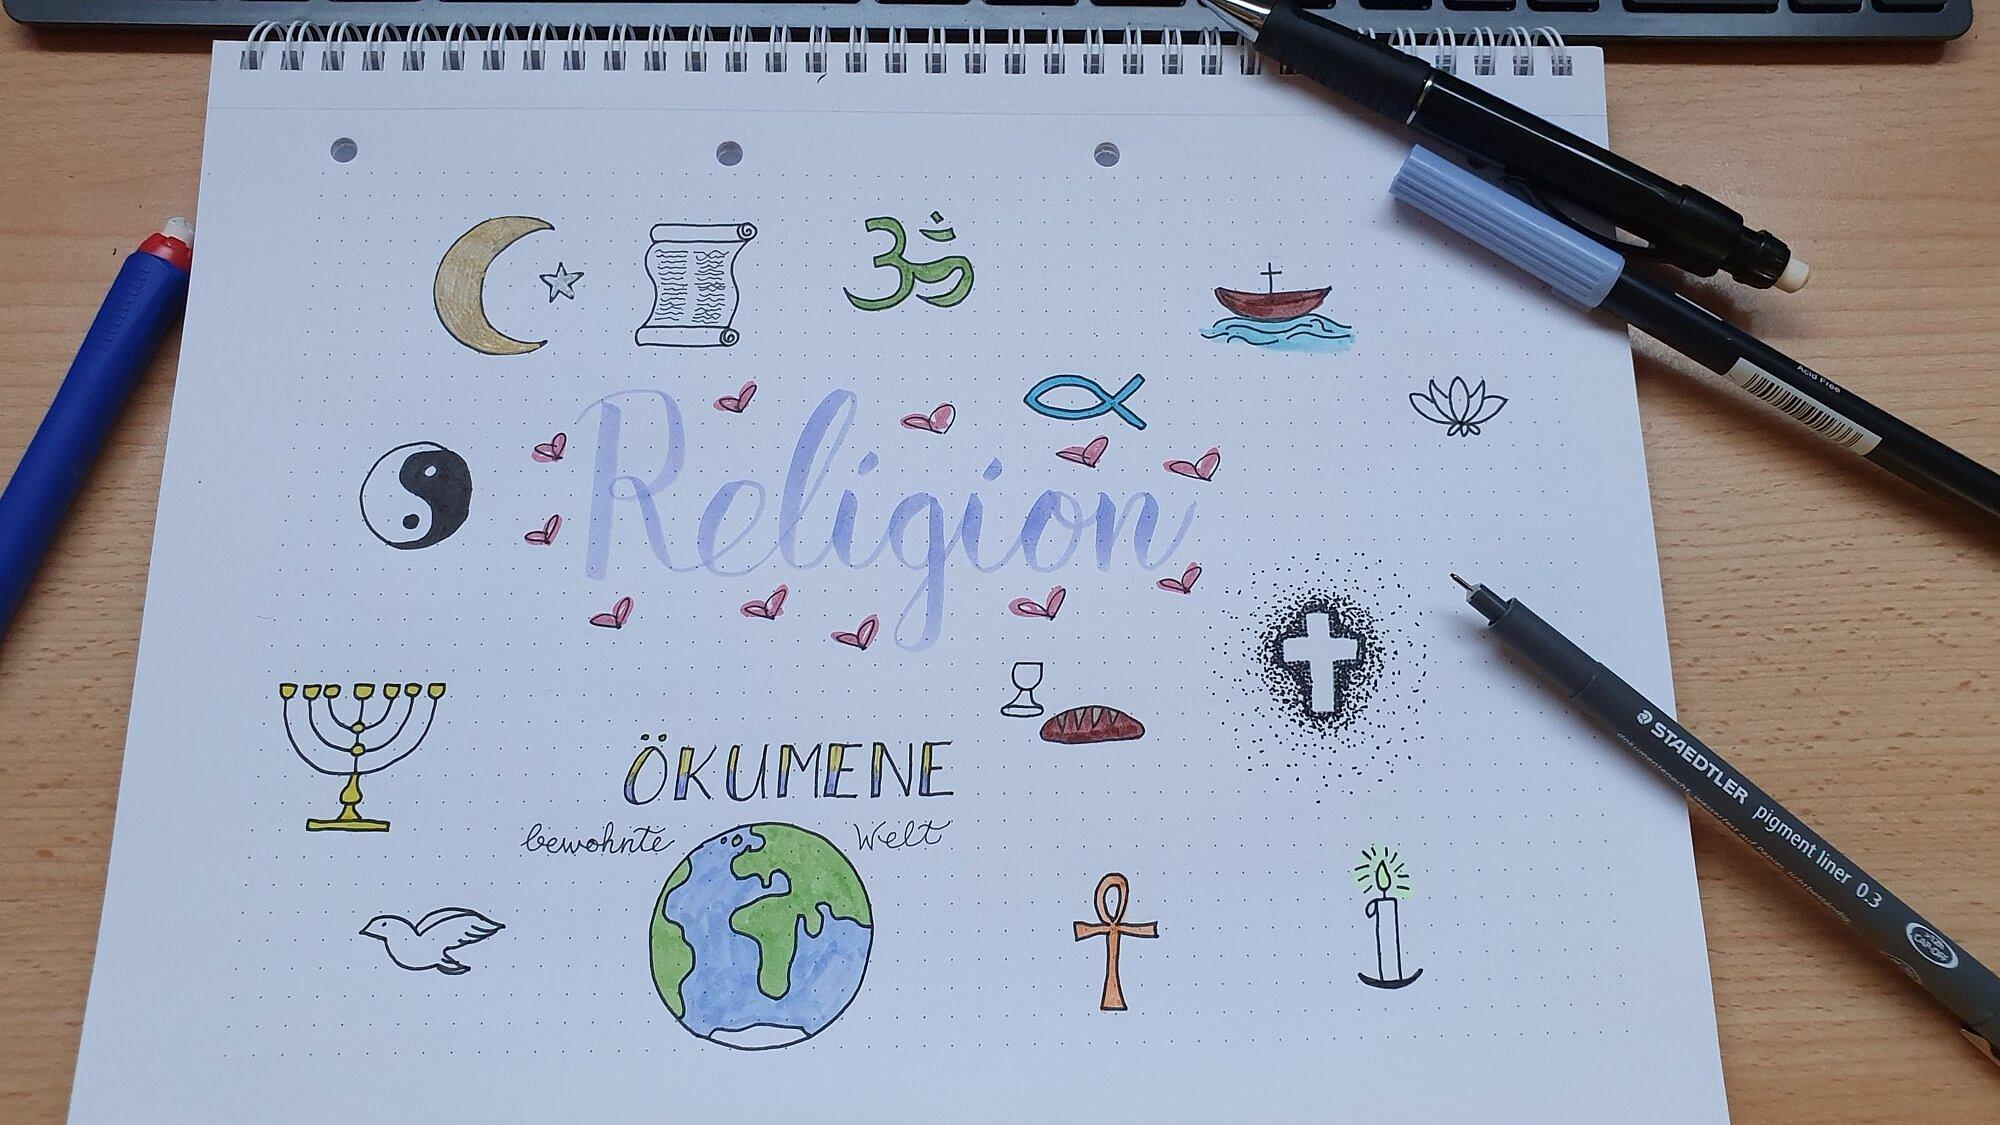 Religion
ÖKUMENE
bewohnte Welt
Acid Free
STAEDTLER pigment liner 0.3